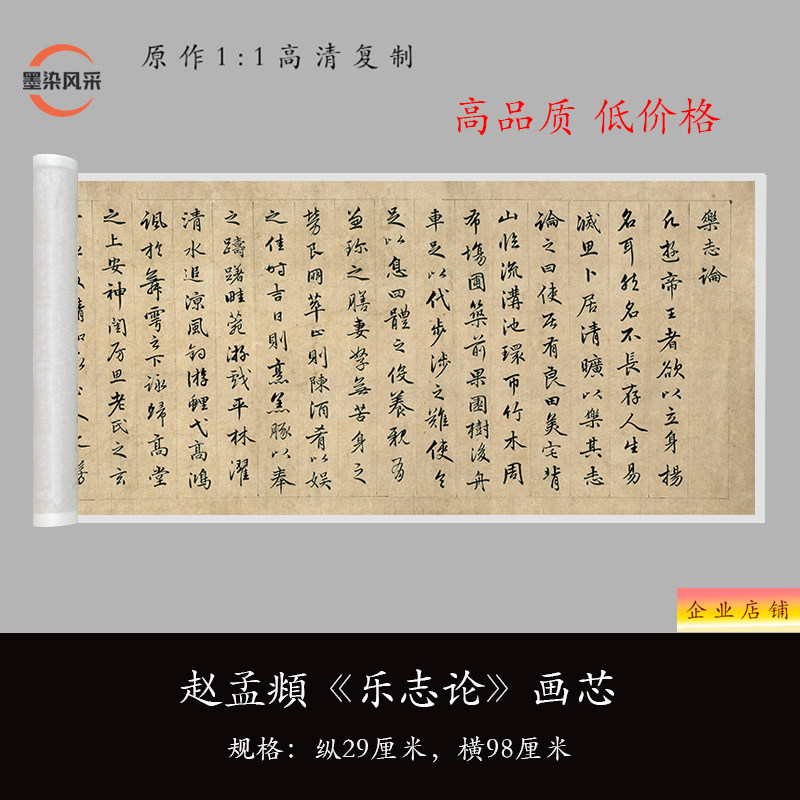 墨染风采
原作1:1高清复制
高品质 低价格
樂志論
凡遊帝王者欲以立身揚
名耳名不長存人生易
滅思卜居清曠以樂其志
論之曰使居有良田美宅背
山臨流溝池環帀竹木周
布場圃築前果園樹後舟
車足以代步涉之難使令
足以息四體之役養親有
兼珍之膳妻孥無苦身之
勞良朋萃止則陳酒肴以娛
之佳時吉日則烹羔豚以奉
之躊躇畦苑游戲平林濯
清水追涼風釣游鯉弋高鴻
諷於舞雩之下詠歸高堂
之上安神閨房思老氏之玄
企业店铺
赵孟頫《乐志论》画芯
规格：纵29厘米，横98厘米